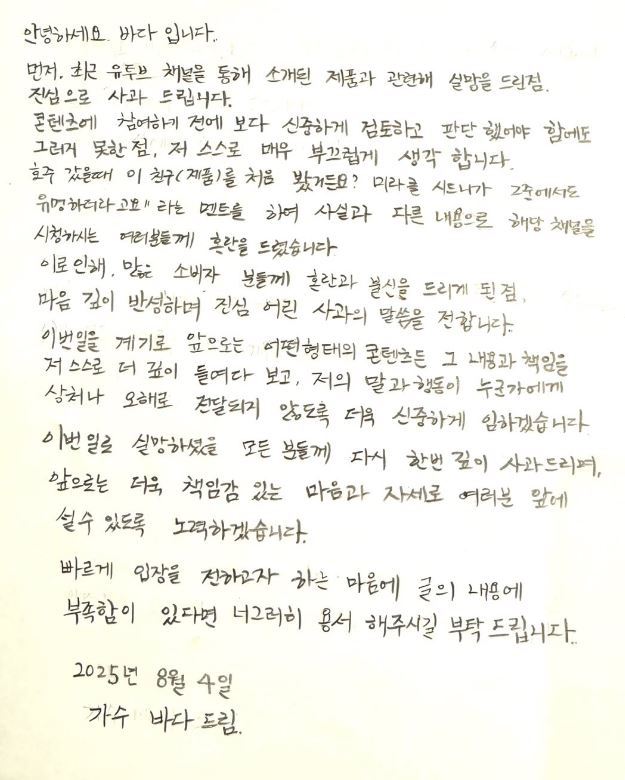 안녕하세요 바다 입니다.
먼저, 최근 유투브 채널을 통해 소개된 제품과 관련해 실망을 드린점,
진심으로 사과 드립니다.
콘텐츠에 참여하기 전에 보다 신중하게 검토하고 판단 했어야 함에도
그러지 못한 점, 저 스스로 매우 부끄럽게 생각 합니다.
호주 갔을때 이 친구(제품)를 처음 봤거든요? 미라클 시드니가 그중에서도
유명하더라고요" 라는 멘트를 하여 사실과 다른 내용으로 해당 채널을
시청하시는 여러분들께 혼란을 드렸습니다
이로인해, 많은 소비자 분들께 혼란과 불신을 드리게 된점,
마음 깊이 반성하며 진심 어린 사과의 말씀을 전합니다.
이번일을 계기로 앞으로는 어떤형태의 콘텐츠든 그 내용과 책임을
저 스스로 더 깊이 들여다 보고, 저의 말과 행동이 누군가에게
상처나 오해로 전달되지 않도록 더욱 신중하게 임하겠습니다
이번 일로 실망하셨을 모든 분들께 다시 한번 깊이 사과드리며,
앞으로는 더욱 책임감 있는 마음과 자세로 여러분 앞에
설수 있도록 노력하겠습니다.
빠르게 입장을 전하고자 하는 마음에 글의 내용에
부족함이 있다면 너그러히 용서 해주시길 부탁 드립니다.
2025년 8월 4일
가수 바다 드림.